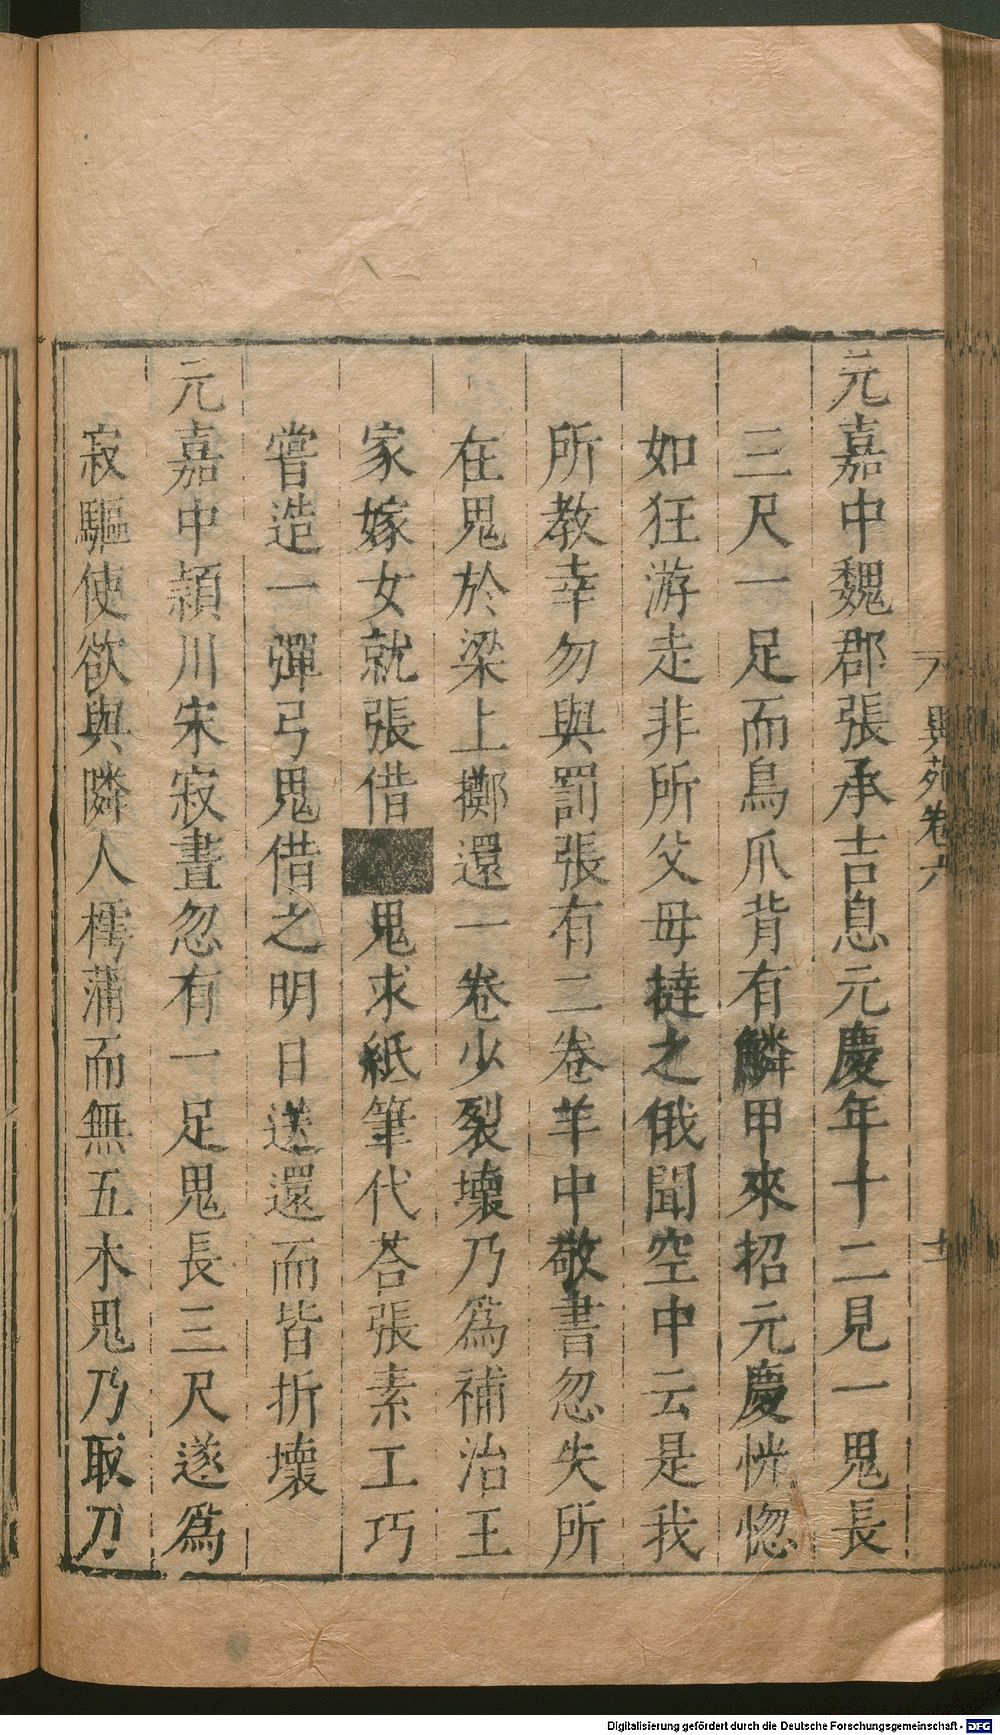 異苑卷六
元嘉中魏郡張承吉息元慶年十二見一鬼長
三尺一足而鳥爪背有鱗甲來招元慶恍惚
如狂游走非所父母撻之俄聞空中云是我
所教幸勿與罰張有二卷羊中敬書忽失所
在鬼於梁上擲還一卷少裂壞乃爲補治王
家嫁女就張借■鬼求紙筆代荅張素工巧
嘗造一彈弓鬼借之明日送還而皆折壞
元嘉中頴川宋寂晝忽有一足鬼長三尺遂爲
寂驅使欲與隣人樗蒲而無五木鬼乃取刀
Digitalisierung gefördert durch die Deutsche Forschungsgemeinschaft - DFG